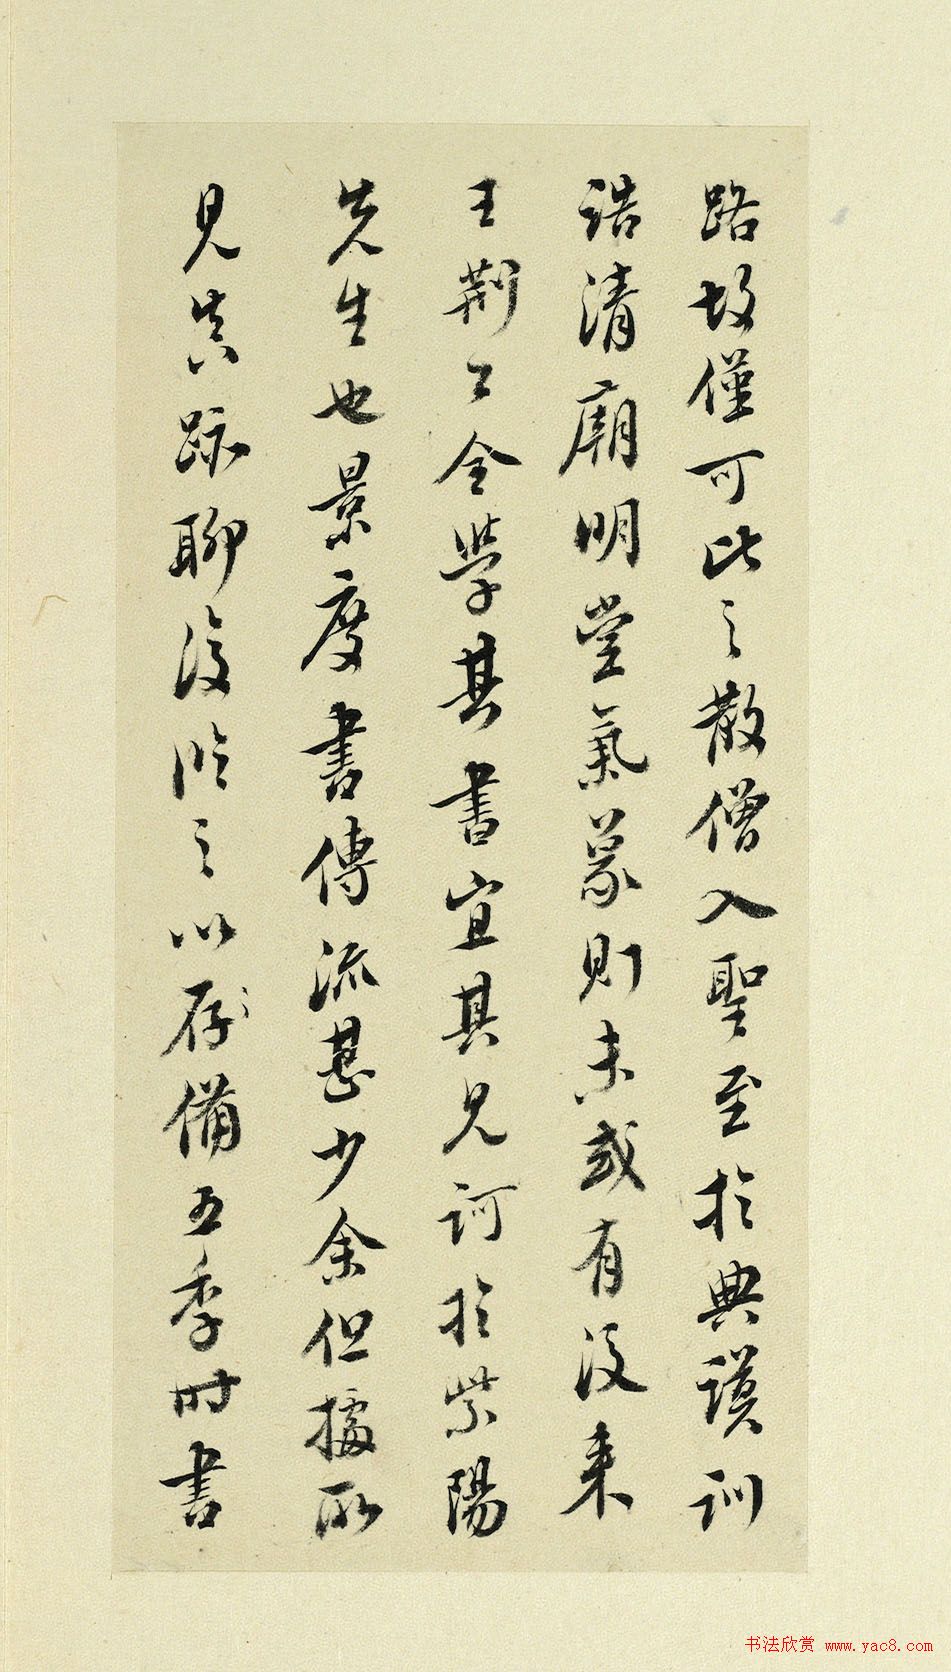 路故僅可比之散僧入聖至於典謨訓
誥清廟明堂氣象則未或有後来
王荆公全學其書宜其見訶於紫陽
先生也景度書傳流甚少余但據所
見真跡聊復臨之以存備五季時書
书法欣赏 www.yac8.com